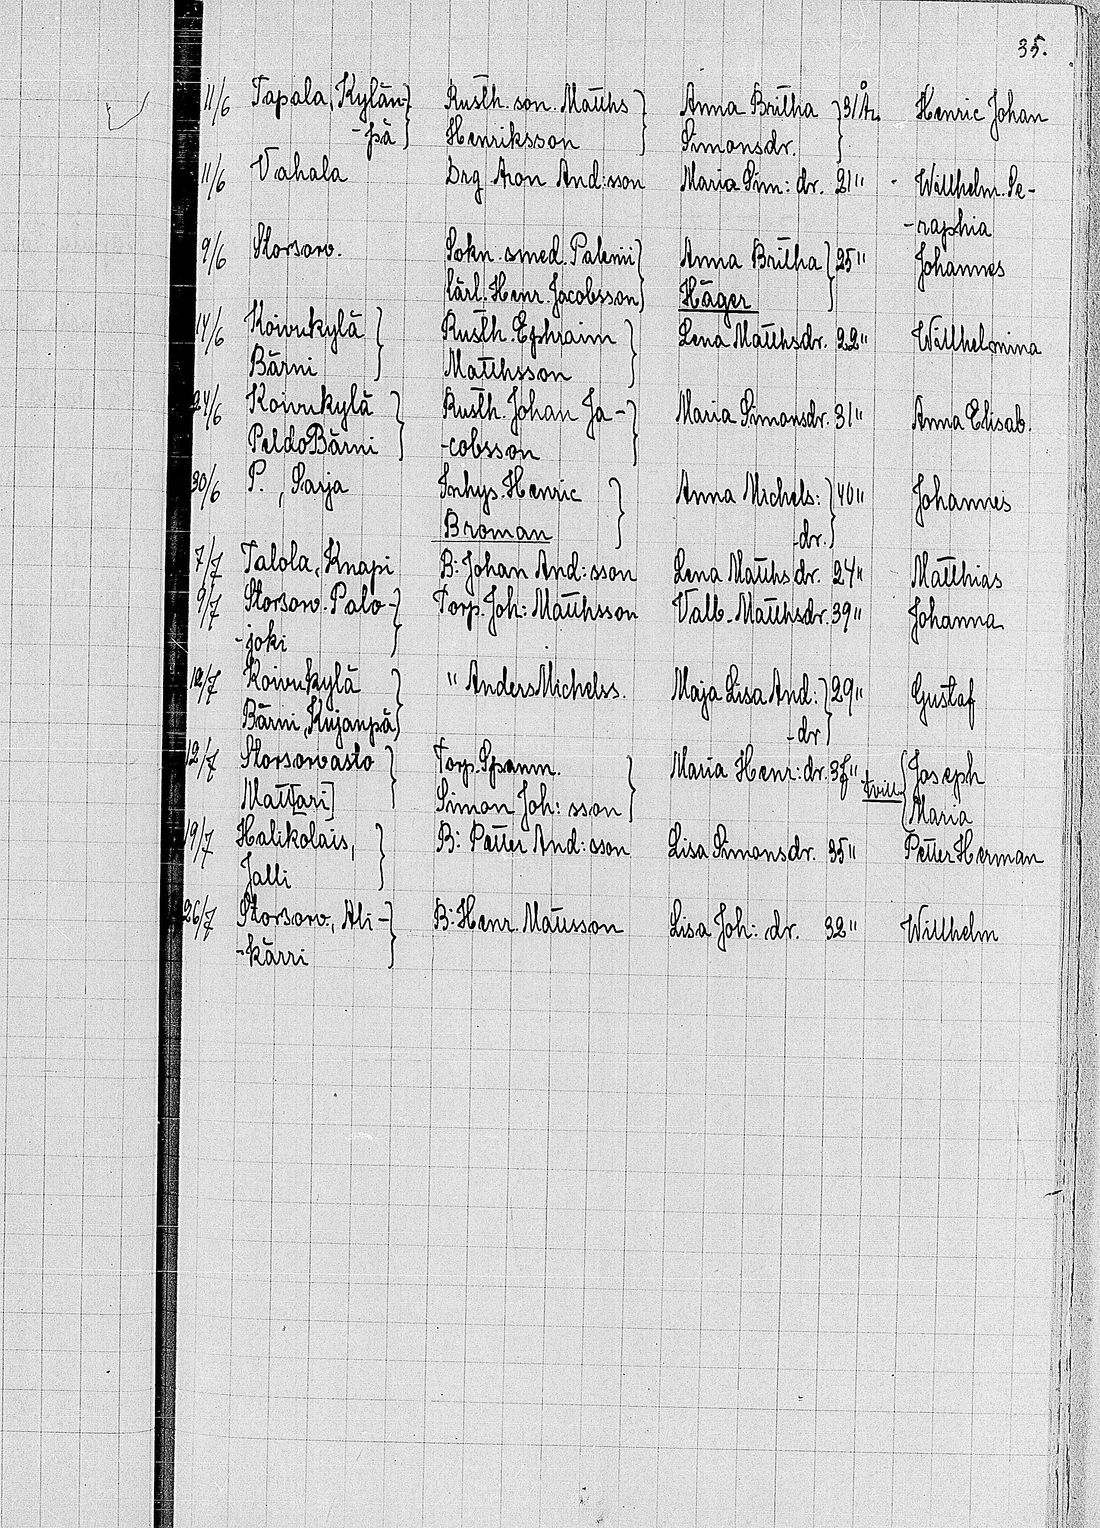 35.
11/6 Tapala, Kylän- Rusth. son. Matths Anna Britha 31 År. Henric Johan
-pä Henriksson Simonsdr.
11/6 Vahala Drg Aron And:sson Maria Sim: dr. 21" - Willhelm. Se-
-raphia
9/6 Storsorv. Sokn. smed. Anna Britha 25" Johannes
lärl. Henr. Jacobsson Häger
14/6 Koivukylä Rusth. Ephraim Lena Matthsdr. 22" Willhelmina
Bärni Matthsson
24/6 Koivukylä Rusth. Johan Ja- Maria Simonsdr. 31" Anna Elisab.
PeldoBärni -cobsson
30/6 P., Sarja Inhys. Henric Anna Michels: 40" Johannes
Broman -dr.
7/7 Talola, Knapi B: Johan And:sson Lena Matths dr. 24" Matthias
9/7 Storsorv. Palo- Torp. Joh: Matthsson Valb. Matthsdr. 39" Johanna
-joki
12/7 Koivukylä " Anders Michelss. Maja Lisa And: 29" Gustaf
Bärni, Kujanpä -dr
12/7 Storsorvasto Torp. Spanm. Maria Henr: dr. tvill Joseph
Matt[ari] Simon Joh: sson Maria
19/7 Halikolais, B: Petter And:sson Lisa Simonsdr. 35" Petter Herman
Jalli
26/7 Storsorv., Ali- B: Henr. Matsson Lisa Joh: dr. 32" Willhelm
-kärri